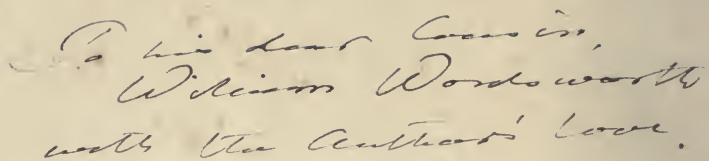 To his dear Cousin,
William Wordsworth
with the Author's love.